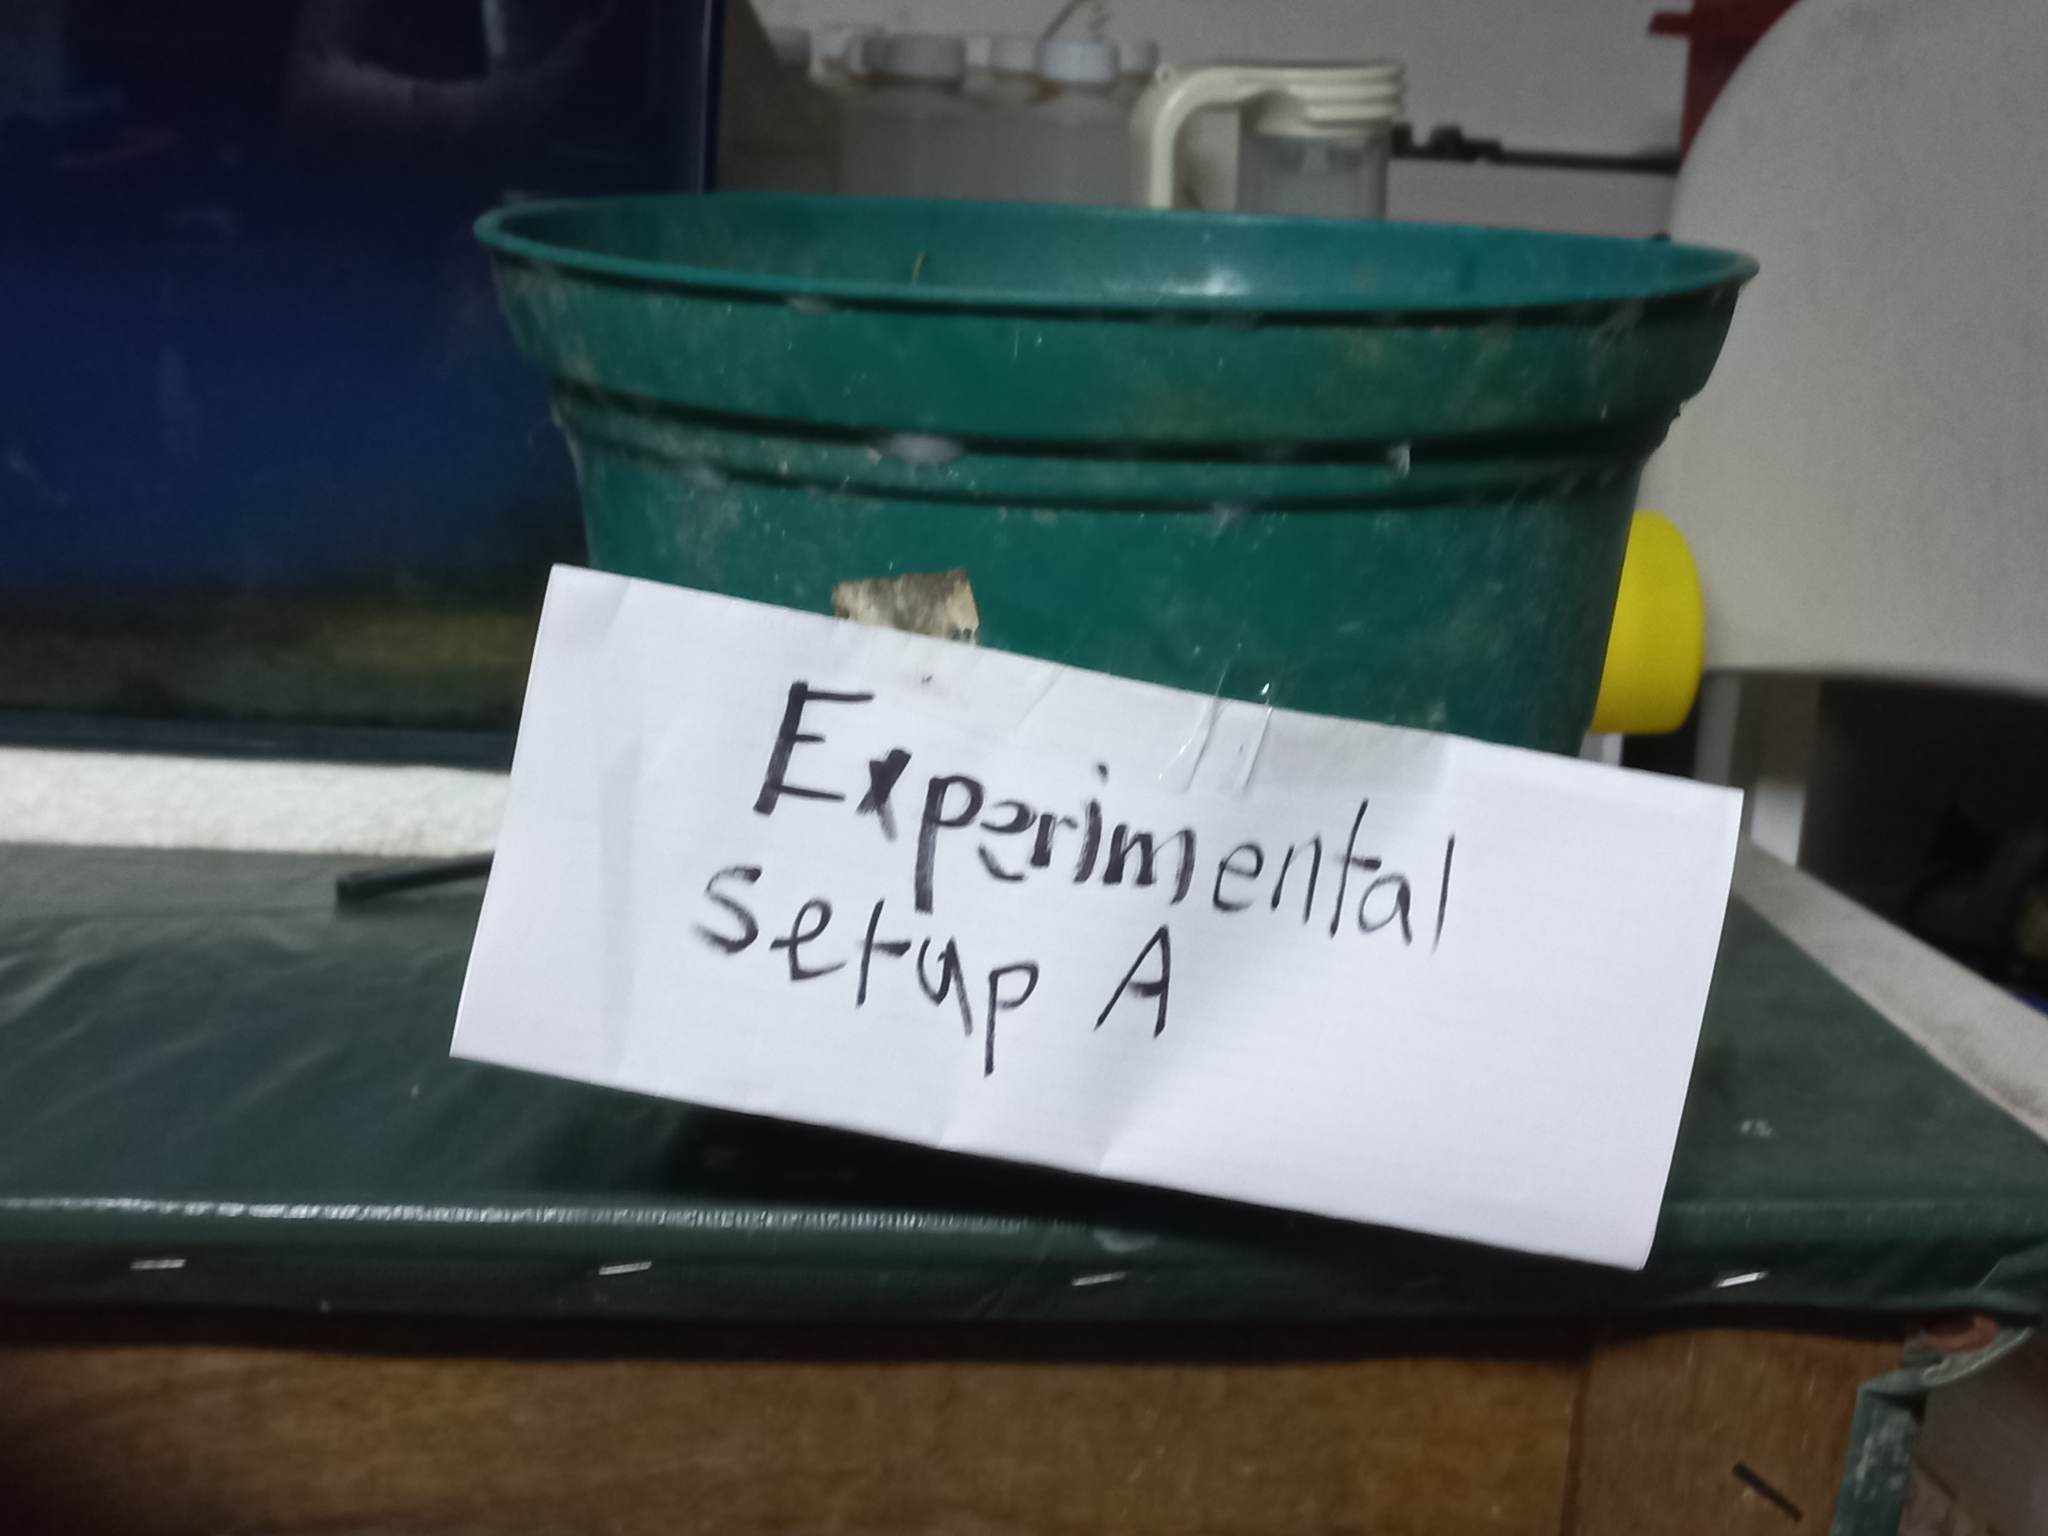 Experimental
setup A